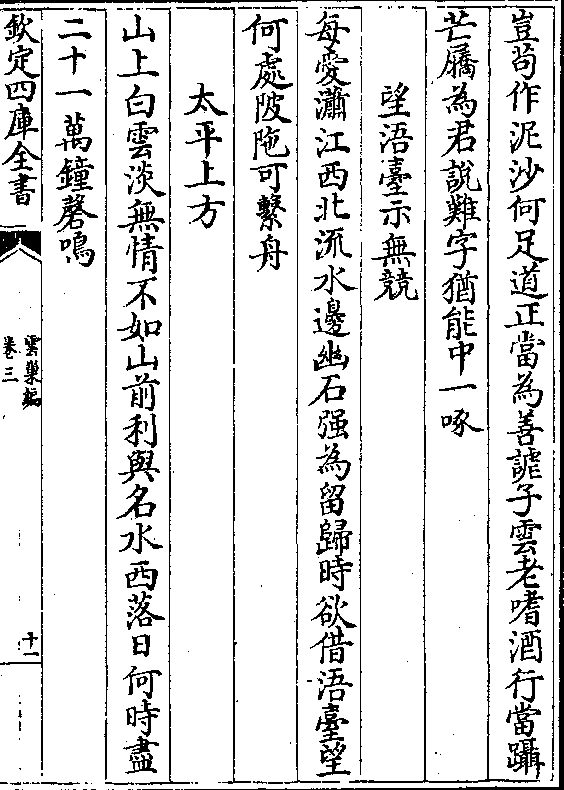 豈苟作泥沙何足道正當為善謔子雲老嗜酒行當躡
芒屩為君說難字猶能中一啄
望浯臺示無競
每愛瀟江西北流水邊幽石强為留歸時欲借浯臺望
何處陂陁可繫舟
太平上方
山上白雲淡無情不如山前利與名水西落日何時盡
二十一萬鐘磬鳴
欽定四庫全書
雲巢編
卷三
十一